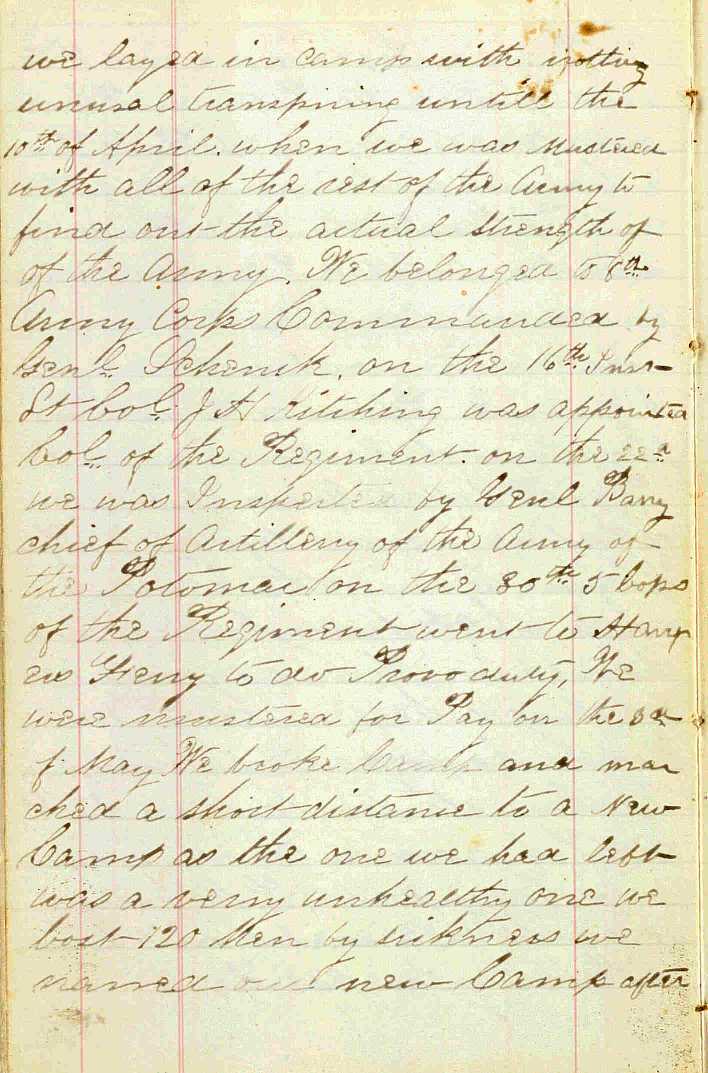 we layed in camp with nothing
unusal transpiring untill the
10th of April. when we was Mustered
with all of the rest of the Army to
find out the actual strength of
of the Army. We belonged to 8th
Army Corps Commanded by
Genl. Schenik. on the 16th Inst
Lt Col. J H Kitching was appointed
Col. of the Regiment. on the 22d
we was Inspected by Genl Barry
chief of Artillery of the Army of
the Potomac on the 30th 5 Cops
of the Regiment went to Harp
ers Ferry to do Provo duty, We
were mustered for Pay on the 3d
of May We broke Camp and mar
ched a short distance to a New
Camp as the one we had left
was a verry unhealthy one we
lost 120 Men by sickness we
named our new Camp after